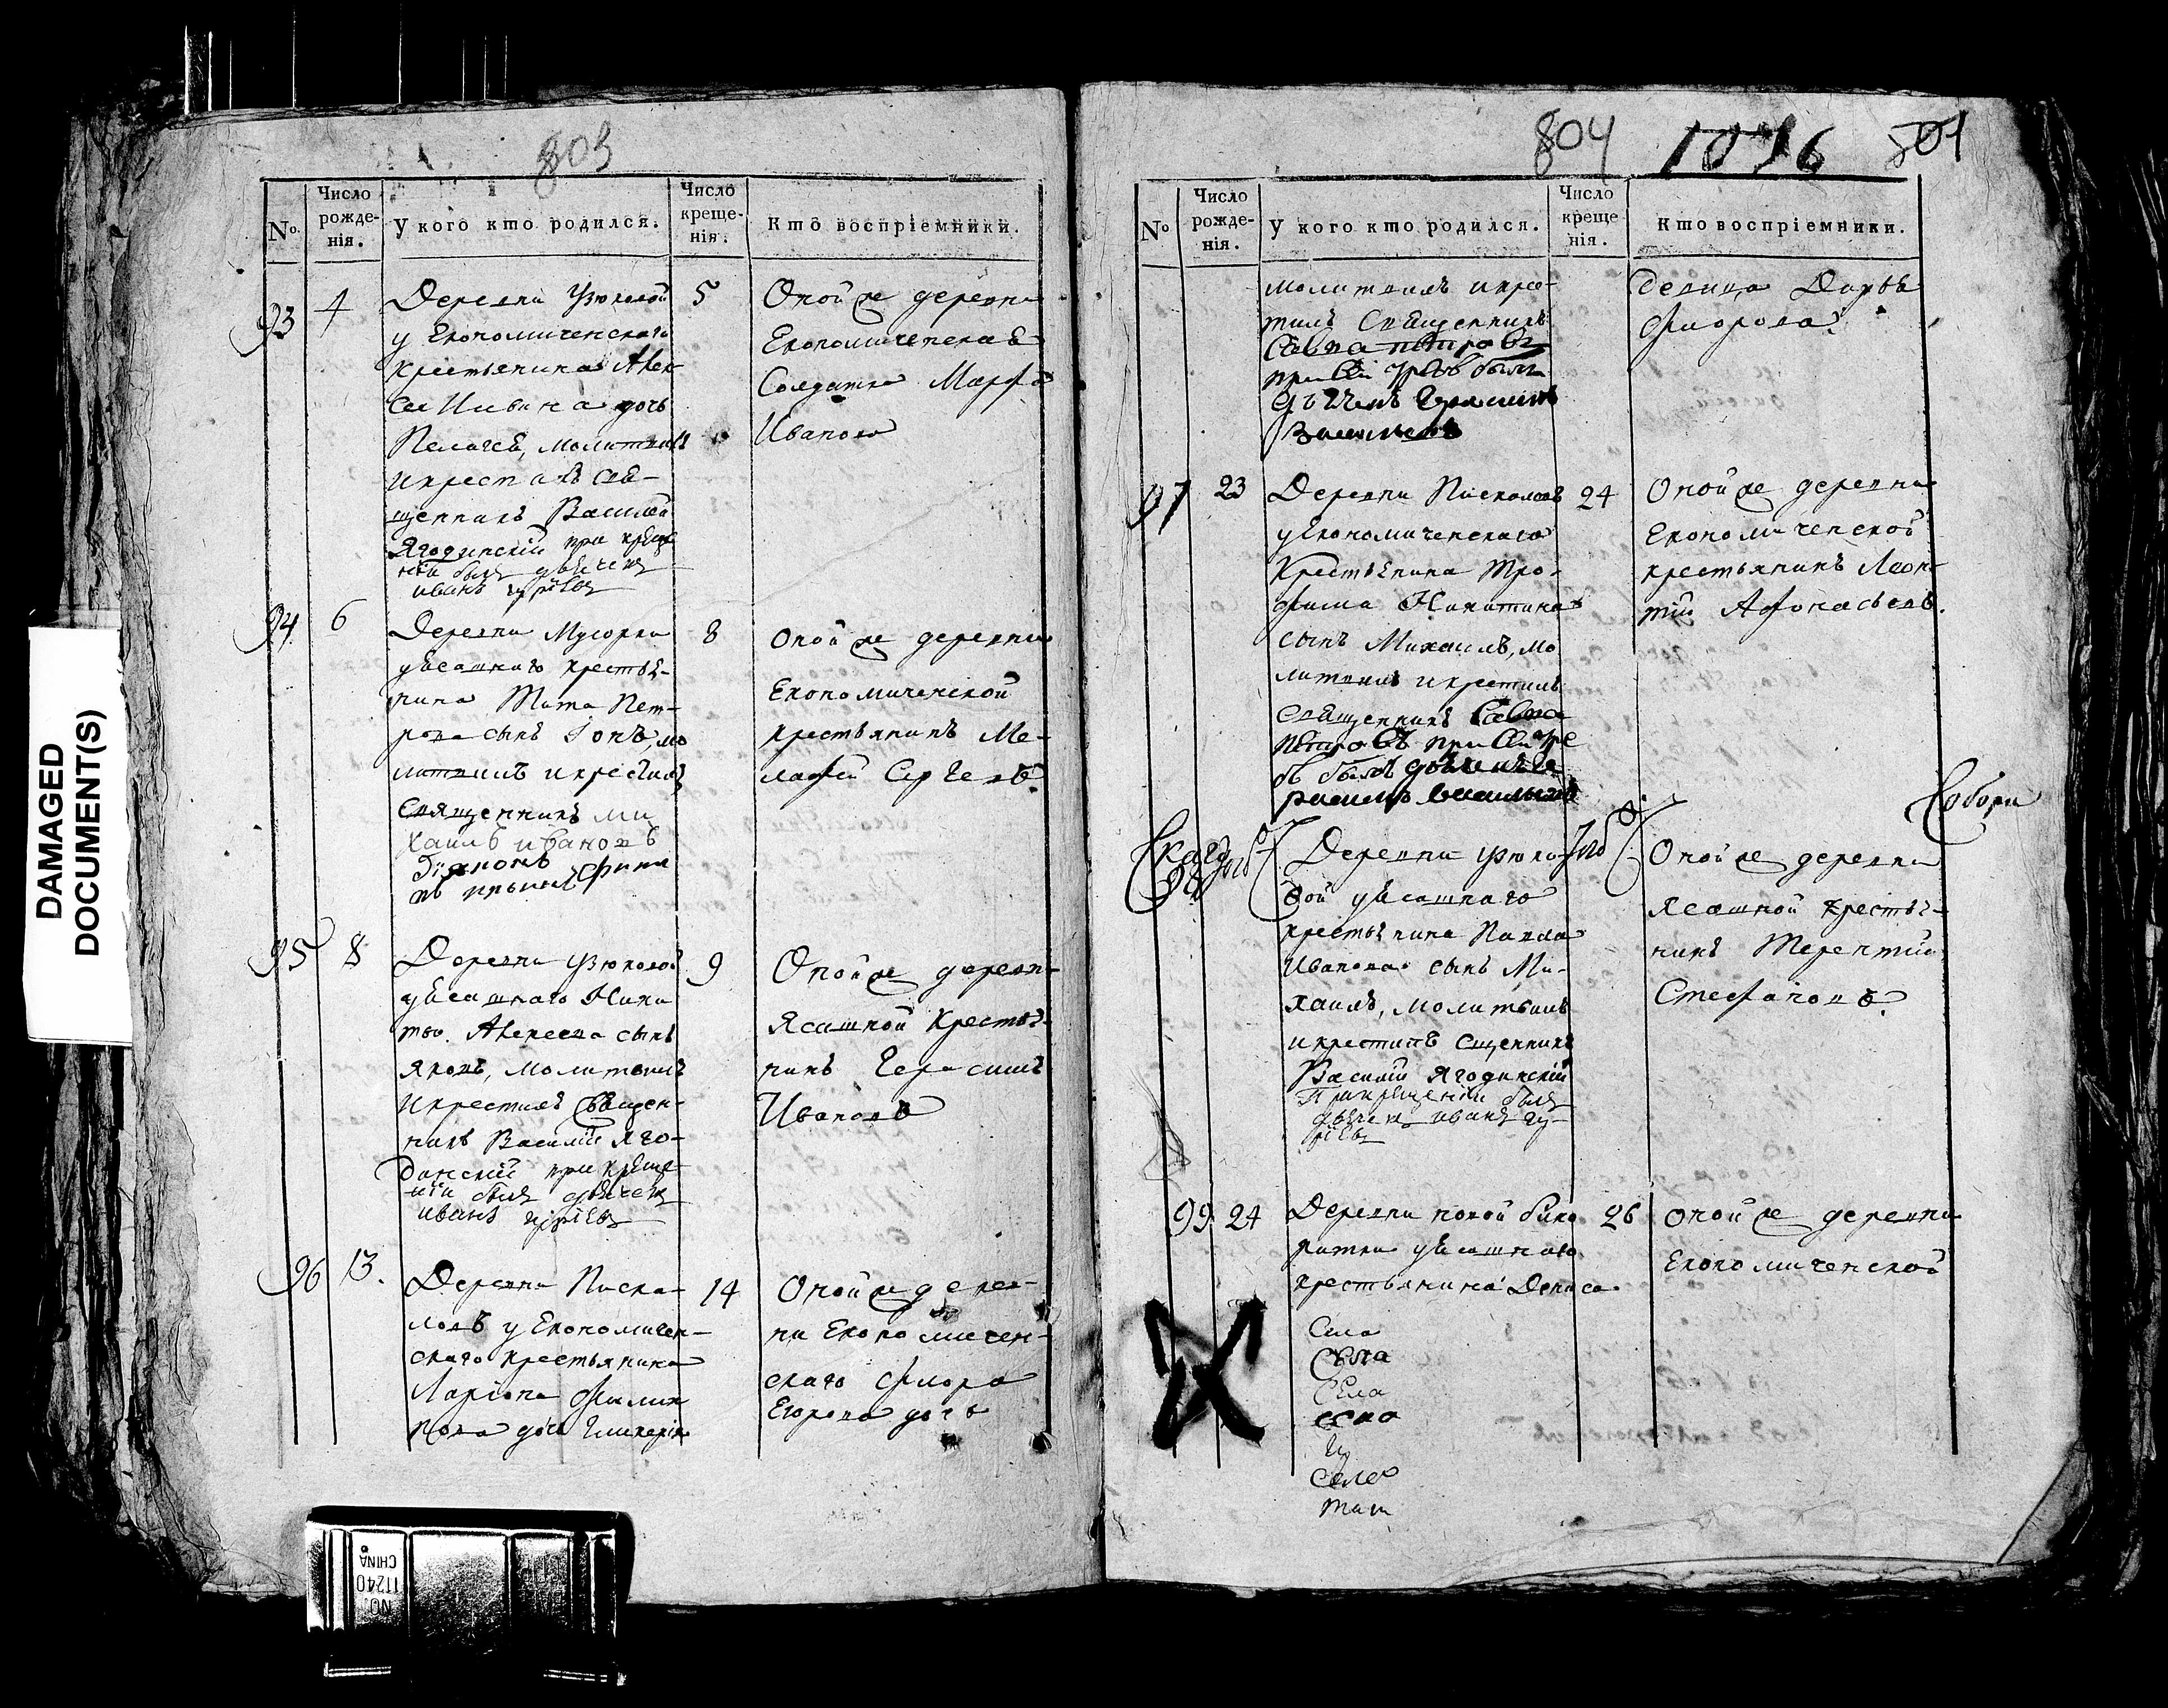 803
№
Число рожде-нія.
У кого кто родился.
Число креще-нія.
Кто воспріемники.
93
4
Деревни Узюковой
у Економическаго
крестьянина Алек
сея Ивана дочь
Пелагеѣ, молитвилъ
и крестилъ свѣ-
щенникъ Василей
Ягодинскій при креще
ніи былъ дьячекъ
иванъ гурiевъ
5
Оной же деревни
Економическаѣ
Солдатка Марфа
Иванова
94
6
Деревни Мусорки
у ясашнаго крестья-
нина Тита Пет-
рова сынъ Іонъ, мо
литвилъ и крестилъ
священникъ ми
хаилъ ивановъ
діяконъ
8
Оной же деревни
Економической
крестьянинъ Ме-
лафей Сергѣевъ
95
8
Деревни Узюковой
у ясашнаго Ники
ты Алексеева сынъ
яковъ, молитвилъ
и крестилъ Свѣщен-
никъ Василій Яго-
динскій при креще
ніи былъ дьячекъ
иванъ гурiевъ
9
Оной же деревн-
Ясашной Кресть-
нинъ Герасимъ
Ивановъ
96
13.
Деревни Писка-
ловъ у Економичен-
скаго крестьянина
Ларіона Филип
пова дочь Гликерія
14
Оной же дерев-
ни Економичен-
скаго Флора
Егорова дочь
804 1016 801
№
Число рожде-нія.
У кого кто родился.
Число креще нія.
Кто воспріемники.
молитвилъ и крес-
тилъ Священникъ
Савва петровъ
при сей требѣ былъ
дьячекъ Герасимъ
Васильевъ
девица Дарья
Флорова
97
23
Деревни Пискаловъ
у Економическаго
Крестьянина Тро-
фима Никитина
сынъ Михаилъ, мо
литвилъ и крестилъ
Священникъ Савва
петровъ при сей тре
бѣ былъ дьячекъ Ге
расимъ васильевъ
24
Оной же деревни
Економической
крестьянинъ Леон-
тій Афонасьевъ.
Собори
98
Деревни узюко
вой у ясашнаго
крестьянина Павла
Иванова сынъ Ми-
хаилъ, молитвилъ
и крестилъ Сщенникъ
Василій Ягодинскій
При крещеніи былъ
дьячекъ иванъ гу-
рiевъ
Оной же деревни
Ясашной крестья-
нинъ Терентій
Стефановъ
99
24
Деревни новой бино
радки у ясашнаго
крестьянина Дениса
26
Оной же деревни
Економической
Села
Села
Села
DAMAGED
DOCUMENT(S)
NO. 11240
CHINA